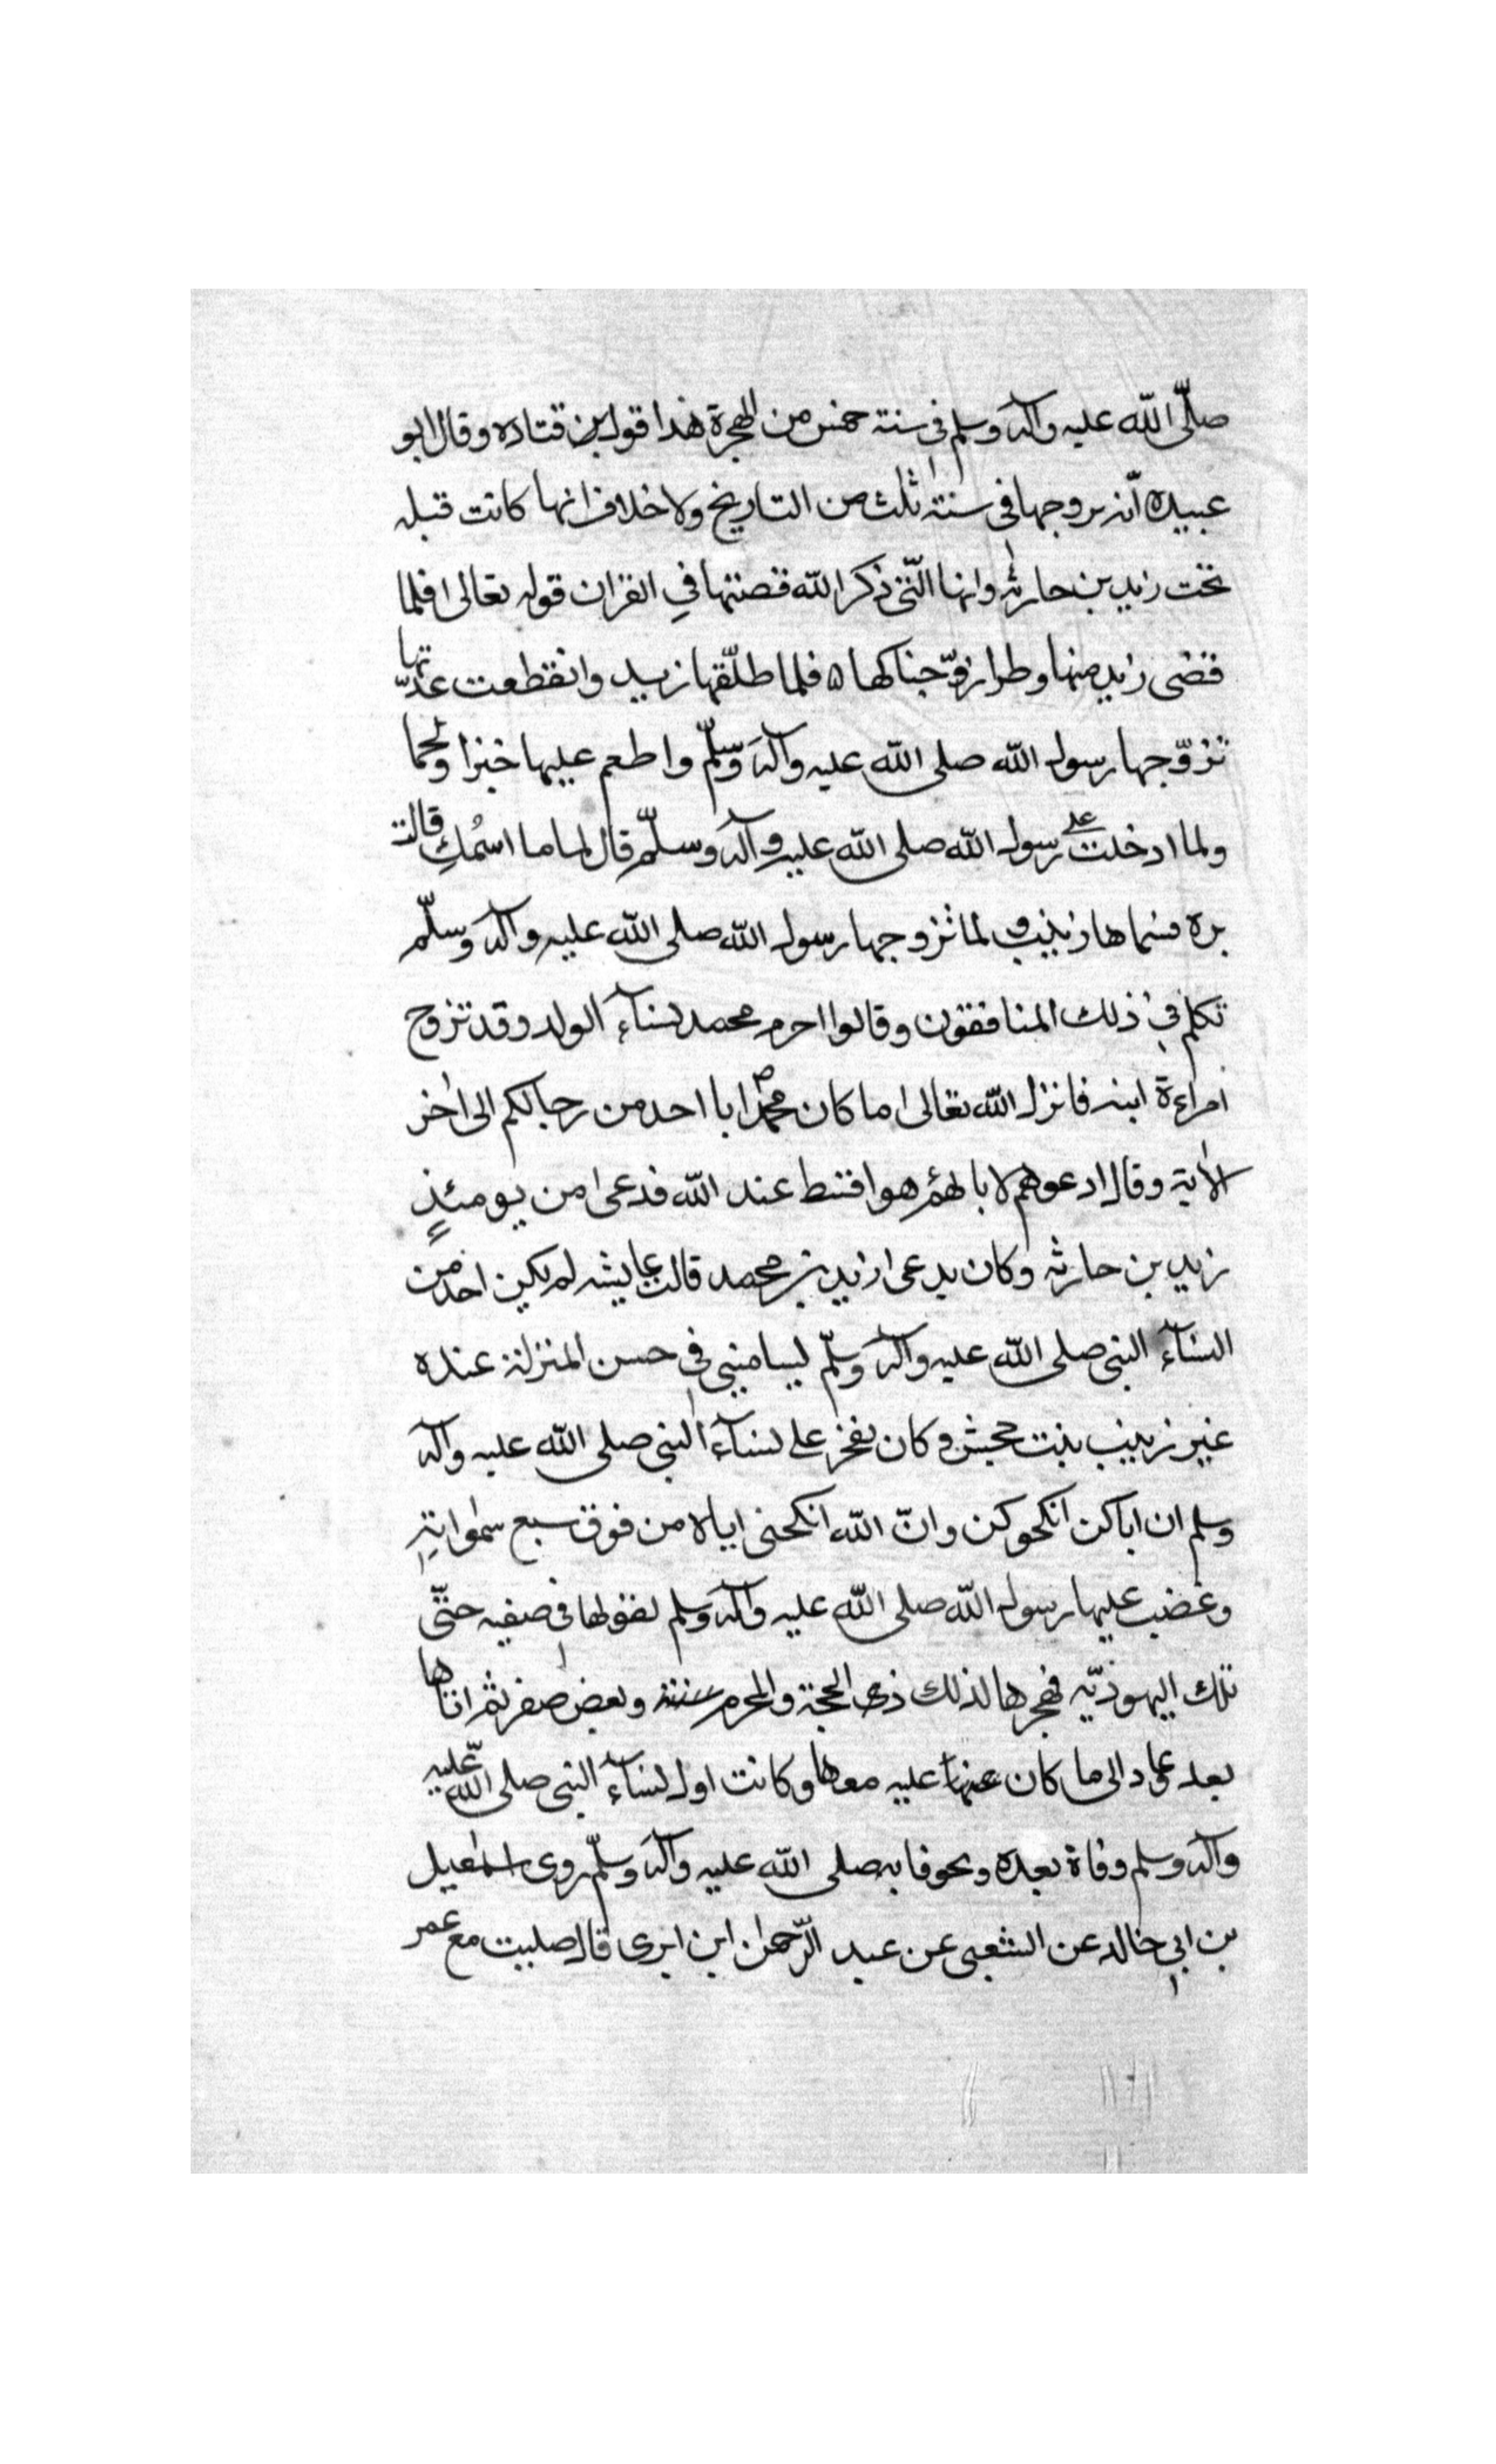 صلّى الله عليه وآله وسلم في سنة خمس من الهجرة هذا قول بن قتاده وقال ابو
عبيده انّه تزوجها في سنة ثلث من التاريخ ولا خلاف انها كانت قبله
تحت زيد بن حارثه وانها الّتي ذكر الله قصتها في القران قوله تعالى فلما
قضى زيد منها وطرا زوّجناكها ۵ فلما طلّقها زيد وانقطعت عدّتها
تزوّجها رسول الله صلى الله عليه وآله وسلّم واطعم عليها خبزا ولحما
ولما ادخلت على رسول الله صلى الله عليه وآله وسلّم قال لها ما اسمُكِ قالت
بره فسماها زينب ولما تزوجها رسول الله صلى الله عليه وآله وسلّم
تكلم في ذلك المنافقون وقالوا احرم محمد نسآء الولد وقد تزوج
امراءة ابنه فانزل الله تعالى ما كان محمد ابا احد من رجالكم الى اخر
الاية وقال ادعوهم لابائهم هو اقسط عند الله فدعى من يومئذٍ
زيد بن حارثه وكان يدعى زيد بن محمد قالت عايشه لم يكن احد من
النسآء النبي صلى الله عليه وآله وسلّم ليساميني في حسن المنزلة عنده
غير زينب بنت جحش وكان تفخر على نسآء النبي صلى الله عليه وآله
وسلم ان اباكن انكحوكن وانّ الله انكحني اياه من فوق سبع سموات
وغضب عليها رسول الله صلى الله عليه وآله وسلم لقولها في صفيه حتّى
تلك اليهوديّه فهجرها لذلك ذى الحجة والمحرم وبعض صفر ثم اتاها
بعد عاد الى ما كان عليه معها وكانت اول نسآء النبي صلى الله عليه
وآله وسلم وفاة بعده ولحوقا به صلى الله عليه وآله وسلّم روى اسمعيل
بن ابي خالد عن الشعبي عن عبد الرّحمن ابن ابزى قال صليت مع عمر